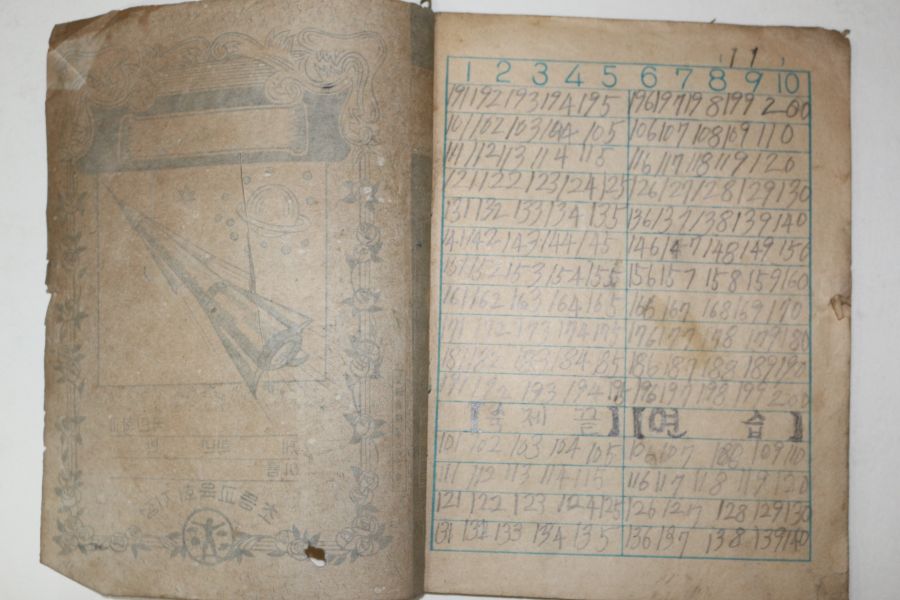 1 2 3 4 5 6 7 8 9 10
191 192 193 194 195 196 197 198 199 200
101 102 103 104 105 106 107 108 109 110
111 112 113 114 115 116 117 118 119 120
121 122 123 124 125 126 127 128 129 130
131 132 133 134 135 136 137 138 139 140
141 142 143 144 145 146 147 148 149 150
151 152 153 154 155 156 157 158 159 160
161 162 163 164 165 166 167 168 169 170
171 172 173 174 175 176 177 178 179 180
181 182 183 184 185 186 187 188 189 190
191 192 193 194 195 196 197 198 199 200
【숙제물】【연습】
101 102 103 104 105 106 107 108 109 110
111 112 113 114 115 116 117 118 119 120
121 122 123 124 125 126 127 128 129 130
131 132 133 134 135 136 137 138 139 140